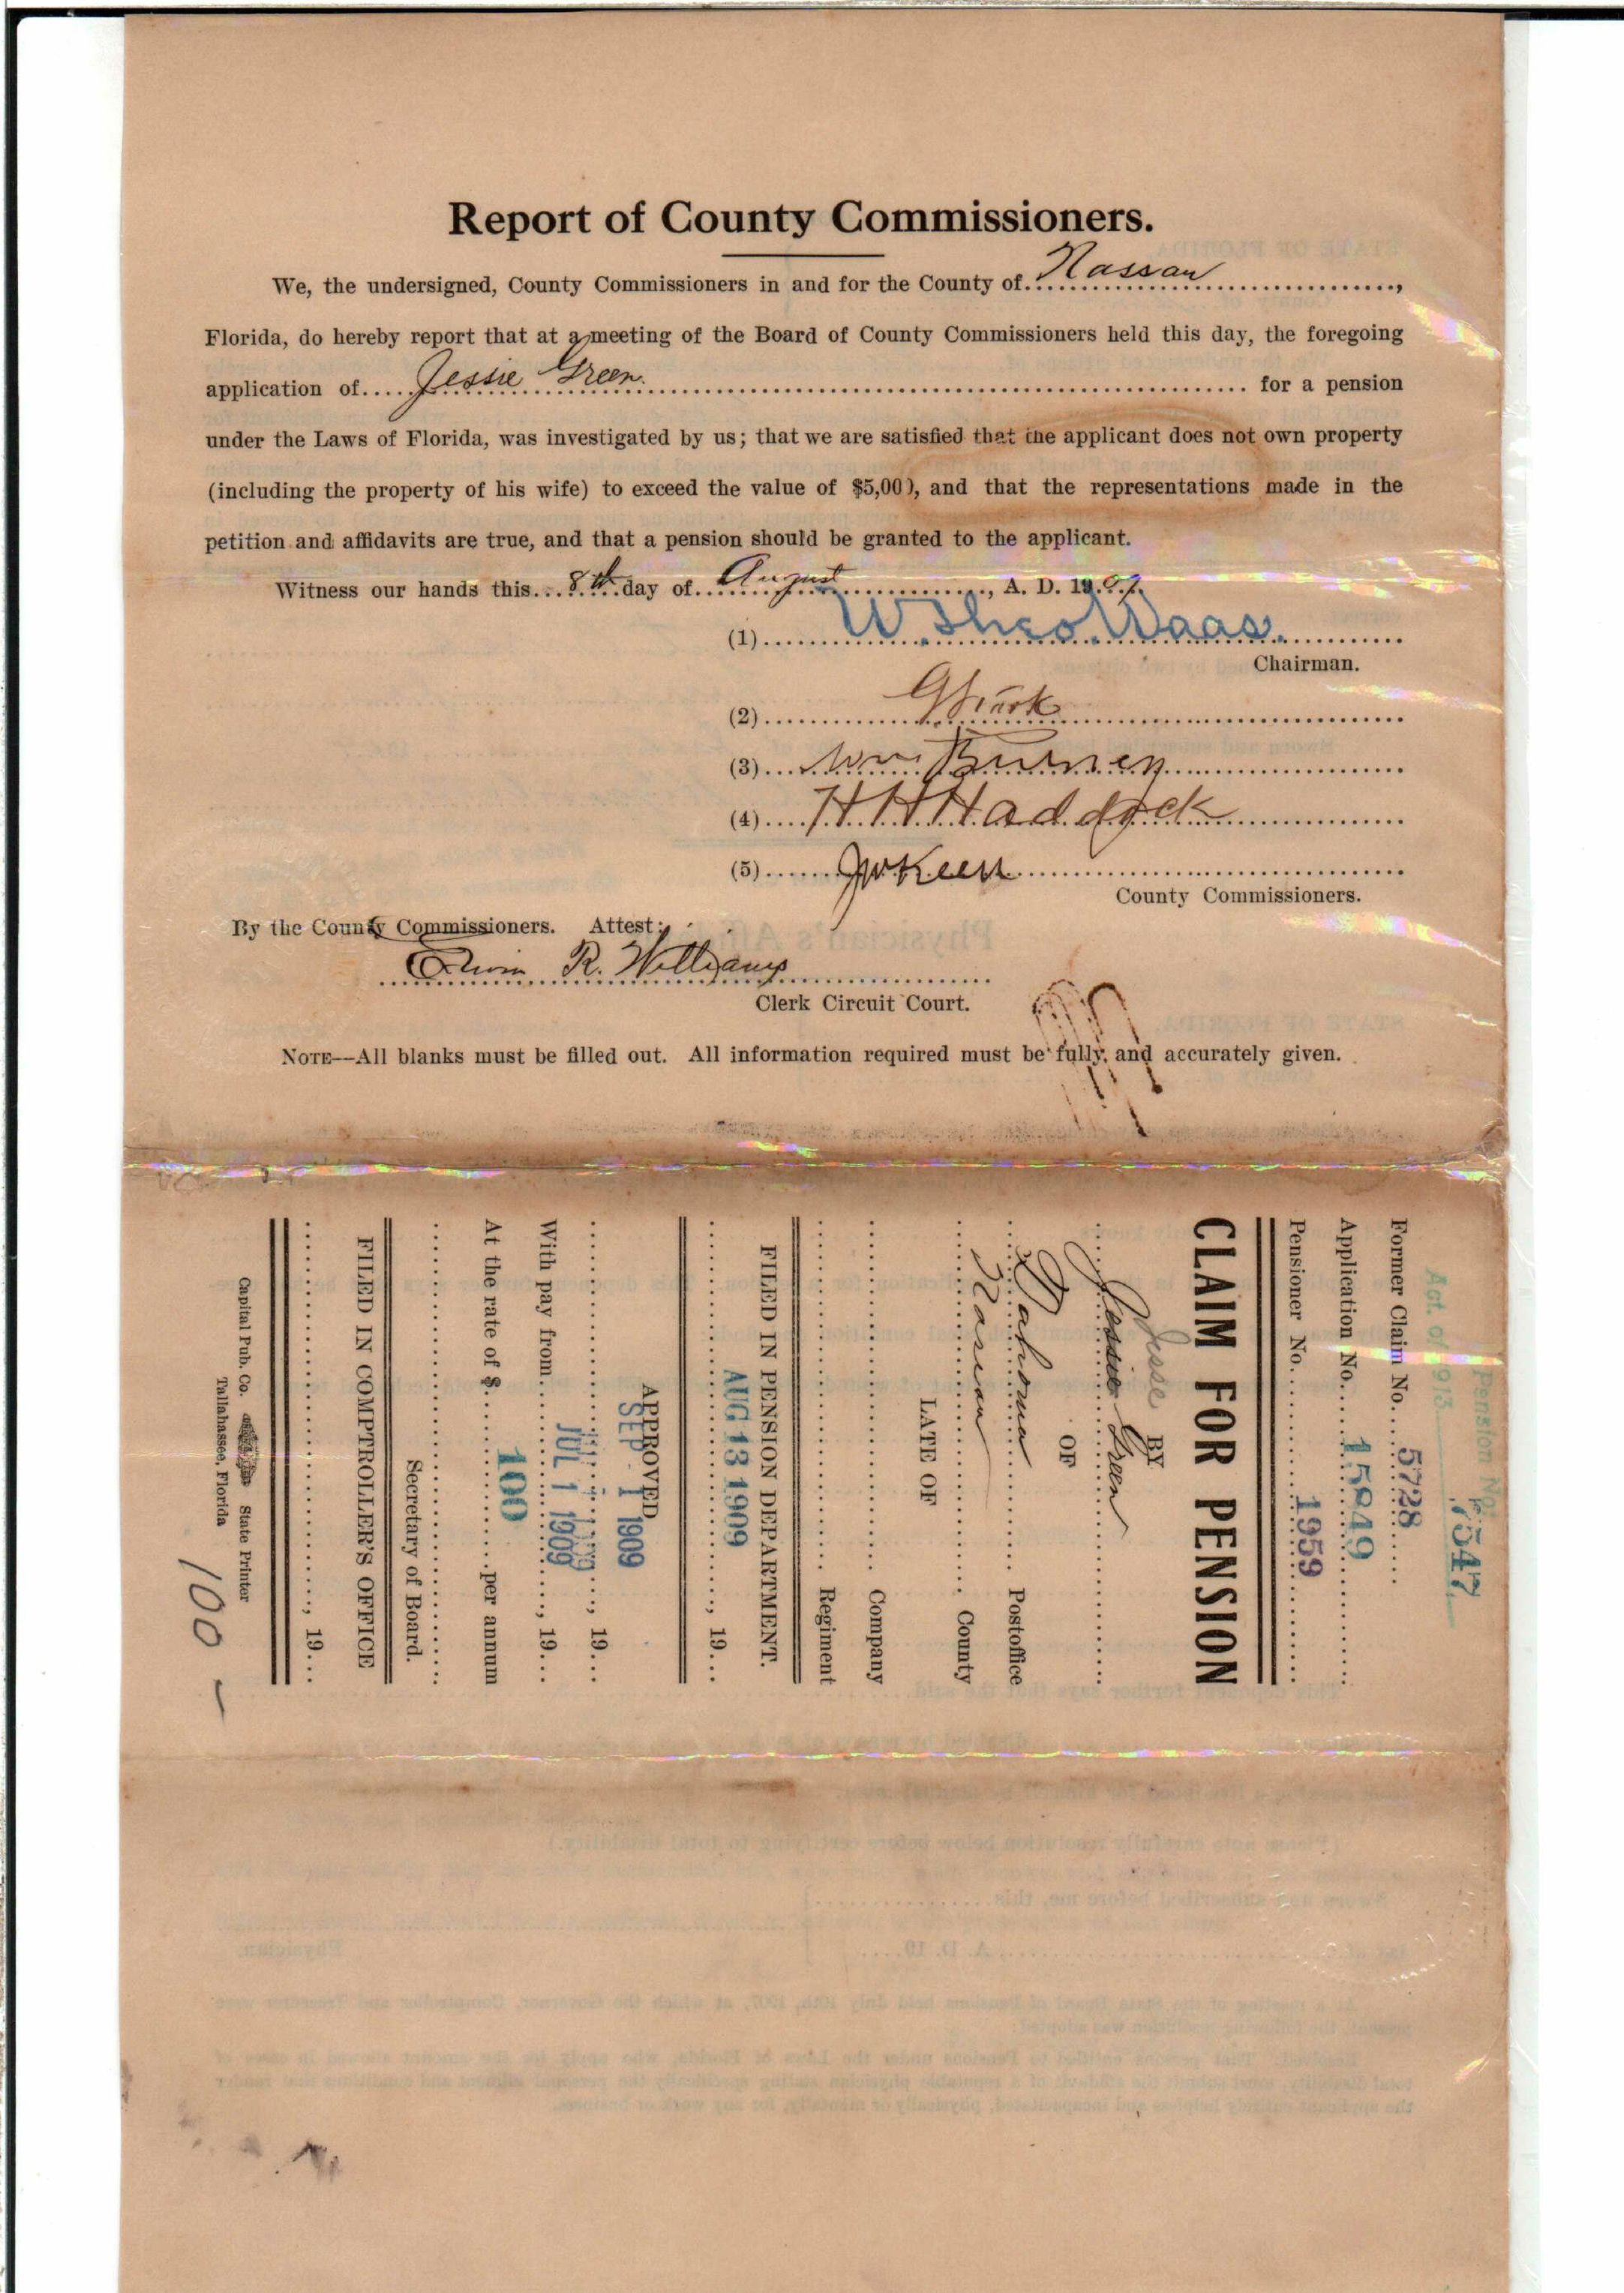 Report of County Commissioners.
We, the undersigned, County Commissioners in and for the County of Nassau,
Florida, do hereby report that at a meeting of the Board of County Commissioners held this day, the foregoing
application of Jessie Green for a pension
under the Laws of Florida, was investigated by us; that we are satisfied that the applicant does not own property
(including the property of his wife) to exceed the value of $5,00), and that the representations made in the
petition and affidavits are true, and that a pension should be granted to the applicant.
Witness our hands this 8th day of August, A. D. 1909.
(1) W. Theo. Waas.
Chairman.
(2)
(3) Wm Burney
(4) H H Haddock
(5) JW Keen
County Commissioners.
By the County Commissioners. Attest:
Edwin R. Williams
Clerk Circuit Court.
NOTE--All blanks must be filled out. All information required must be fully and accurately given.
Pension No.
7547
Act. of 1913
Former Claim No. 5728
Application No. 15849
Pensioner No. 1959
CLAIM FOR PENSION
BY
Jesse
Jessie Green
OF
Postoffice
Nassau County
LATE OF
Company
Regiment
FILED IN PENSION DEPARTMENT.
AUG 13 1909, 19
APPROVED
SEP 1 1909
, 19
With pay from JUL 1 1909, 19
At the rate of $ 100 per annum
Secretary of Board.
FILED IN COMPTROLLER'S OFFICE
, 19
Capital Pub. Co. State Printer
Tallahassee, Florida
100 –